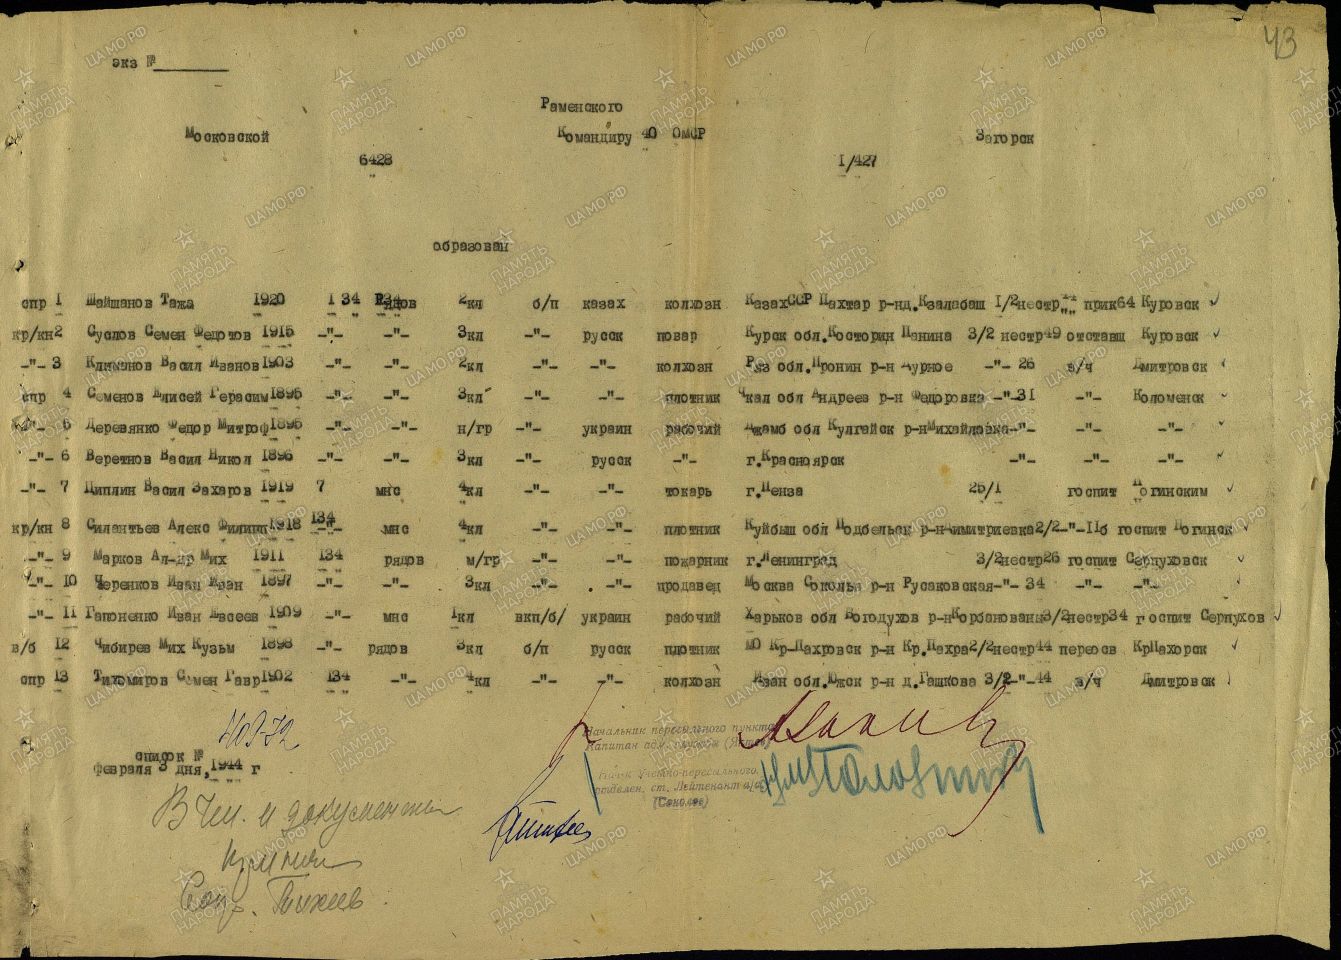 43
экз №
Раменского
Московской Командиру 40 ОМСР Загорск
6428 I/427
образован
спр I Шайшанов Тажа 1920 I 34 Рядов 2кл б/п казах колхозн КазахССР Пахтар р-нд.Кзалабаш I/2нестр прик64 Куровск
кр/кн2 Суслов Семен Федотов 1915 -"- -"- 3кл -"- русск повар Курск обл.Косторин Панина 3/2 нестр49 отставш Куровск
-"- 3 Климанов Васил Иванов1903 -"- -"- 2кл -"- -"- колхозн Ряз обл.Пронин р-н Дурное -"- 26 в/ч Дмитровск
спр 4 Семенов Елисей Герасим1895 -"- -"- 3кл -"- -"- плотник Чкал обл Андреев р-н Федоровка -"-3I -"- Коломенск
-"- 5 Деревянко Федор Митроф1895 -"- -"- н/гр -"- украин рабочий Джамб обл Кулгайск р-нМихайловка-"- -"- -"-
-"- 6 Веретнов Васил Никол 1896 -"- 3кл -"- русск -"- г.Красноярск -"- -"- -"-
-"- 7 Циплин Васил Захаров 1919 7 мнс 4кл -"- -"- токарь г.Пенза 25/I госпит Ногинским
кр/кн 8 Силантьев Алекс Филипп1918 134 -"- мнс 4кл -"- -"- плотник Куйбыш обл Подбельск р-нДимитриевка2/2-"-IIб госпит Ногинск
-"- 9 Марков Ал-др Мих 1911 134 рядов м/гр -"- -"- пожарник г.Ленинград 3/2нестр26 госпит Серпуховск
-"- 10 Черенков Иван Иван 1897 -"- -"- 3кл -"- -"- продавец Москва Сокольн р-н Русаковская-"- 34 -"- -"-
-"- 11 Гапоненко Иван Евсеев 1909 -"- мнс 1кл вкп/б/ украин рабочий Харьков обл Богодухов р-нКорбановань3/2нестр34 госпит Серпухов
в/б 12 Чибирев Мих Кузьм 1898 -"- рядов 3кл б/п русск плотник МО Кр-Пахровск р-н Кр.Пахра2/2нестр44 переосв КрПахорск
спр 13 Тихомиров Семен Гавр1902 134 -"- 4кл -"- -"- колхозн Ивзн обл.Южск р-н д.Гашкова 3/2-"-44 в/ч Дмитровск
Начальник пересыльного пункта
Капитан адм. службы
список №
февраля 3 дня, 1944 г
Нач-ик Учетно-пересыльного
отделен. ст. Лейтенант а/с
(Соколов)
В Чел. и документы
принял